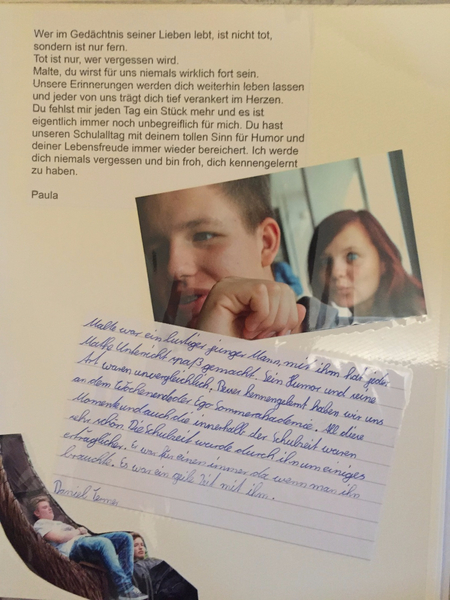 Wer im Gedächtnis seiner Lieben lebt, ist nicht tot,
sondern ist nur fern.
Tot ist nur, wer vergessen wird.
Malte, du wirst für uns niemals wirklich fort sein.
Unsere Erinnerungen werden dich weiterhin leben lassen
und jeder von uns trägt dich tief verankert im Herzen.
Du fehlst mir jeden Tag ein Stück mehr und es ist
eigentlich immer noch unbegreiflich für mich. Du hast
unseren Schulalltag mit deinem tollen Sinn für Humor und
deiner Lebensfreude immer wieder bereichert. Ich werde
dich niemals vergessen und bin froh, dich kennengelernt
zu haben.
Paula
Malte war ein lustiger junger Mann, mit ihm hat jeder
Mathe Unterricht spaß gemacht. Sein Humor und seine
Art waren unvergleichlich. kennengelernt haben wir uns
an dem Wochenende der Ego-Sommerakademie. All diese
Momente und auch die innerhalb der Schulzeit waren
sehr schön. Die Schulzeit wurde durch ihn um einiges
erträglicher. Er war für einen immer da wenn man ihn
brauchte. Es war ein geile Zeit mit ihm.
Daniel